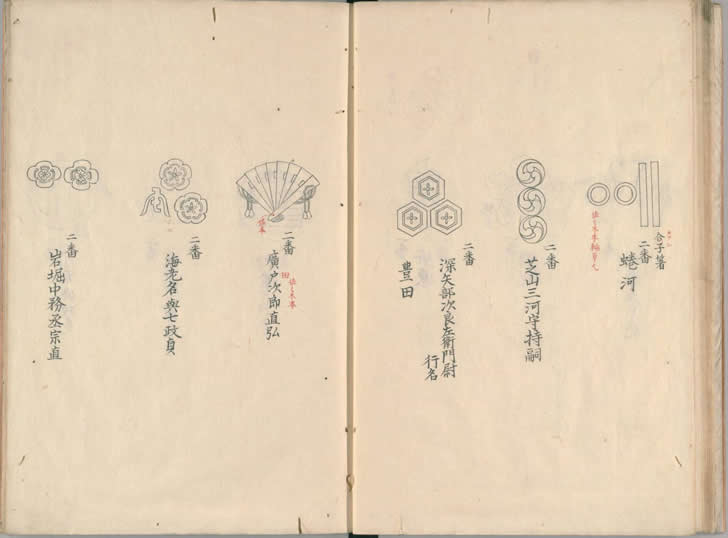 合子箸
二番
蜷河
二番
芝山三河守持嗣
二番
深矢部次良左衛門尉
行名
豊田
二番
廣戸次郎直弘
田
佐々木本
二番
海老名與七政貞
二番
岩堀中務丞宗直